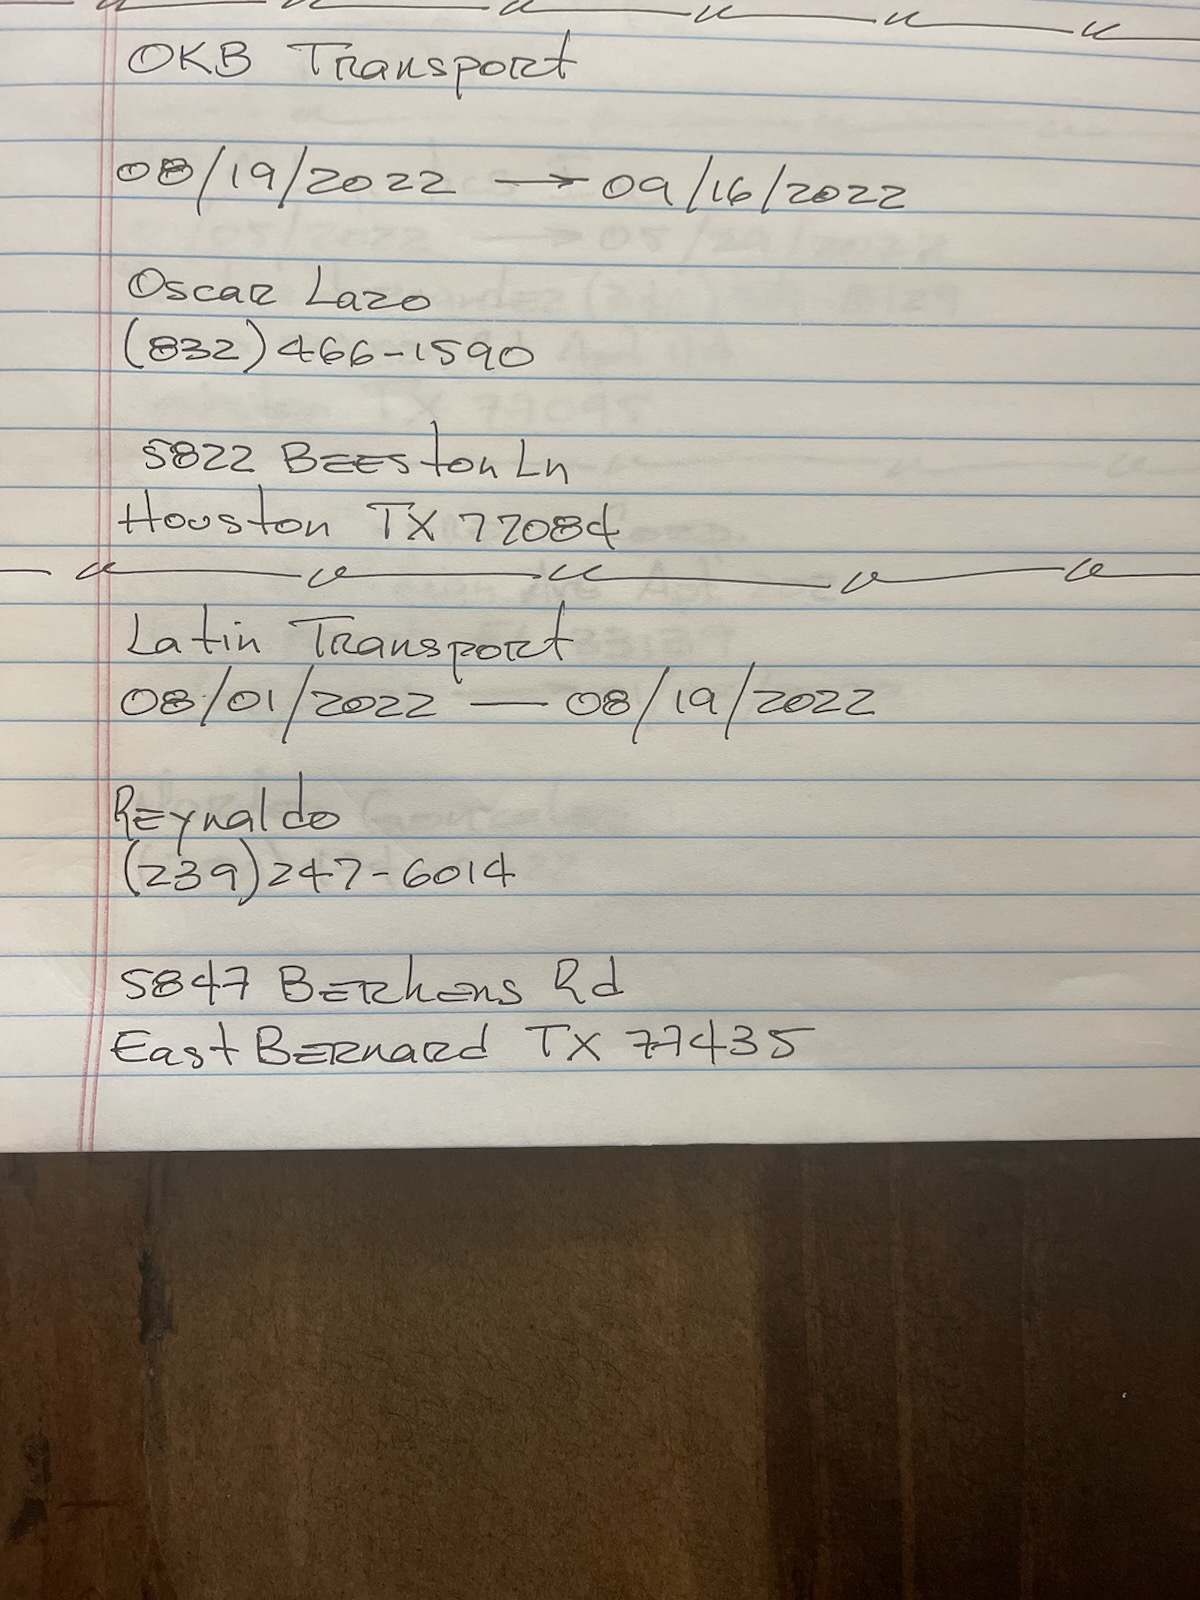 OKB Transport
08/19/2022 → 09/16/2022
Oscar Lazo
(832)466-1590
5822 Beeston Ln
Houston TX 77084
Latin Transport
08/01/2022 — 08/19/2022
Reynaldo
(239)247-6014
5847 Berkens Rd
East Bernard TX 77435